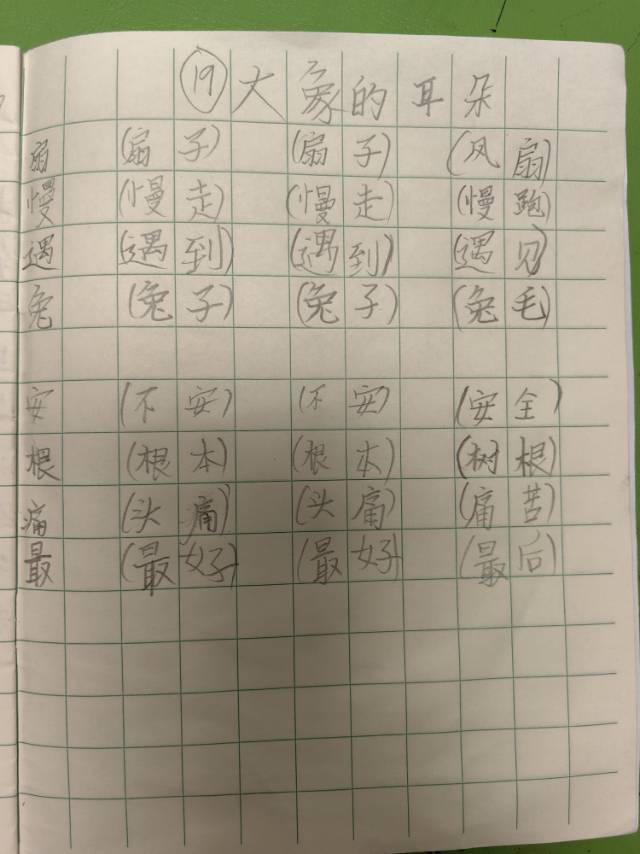 ⑲大象的耳朵
扇 (扇子) (扇子) (风扇)
慢 (慢走) (慢走) (慢跑)
遇 (遇到) (遇到) (遇见)
兔 (兔子) (兔子) (兔毛)
安 (不安) (不安) (安全)
根 (根本) (根本) (树根)
痛 (头痛) (头痛) (痛苦)
最 (最好) (最好) (最后)